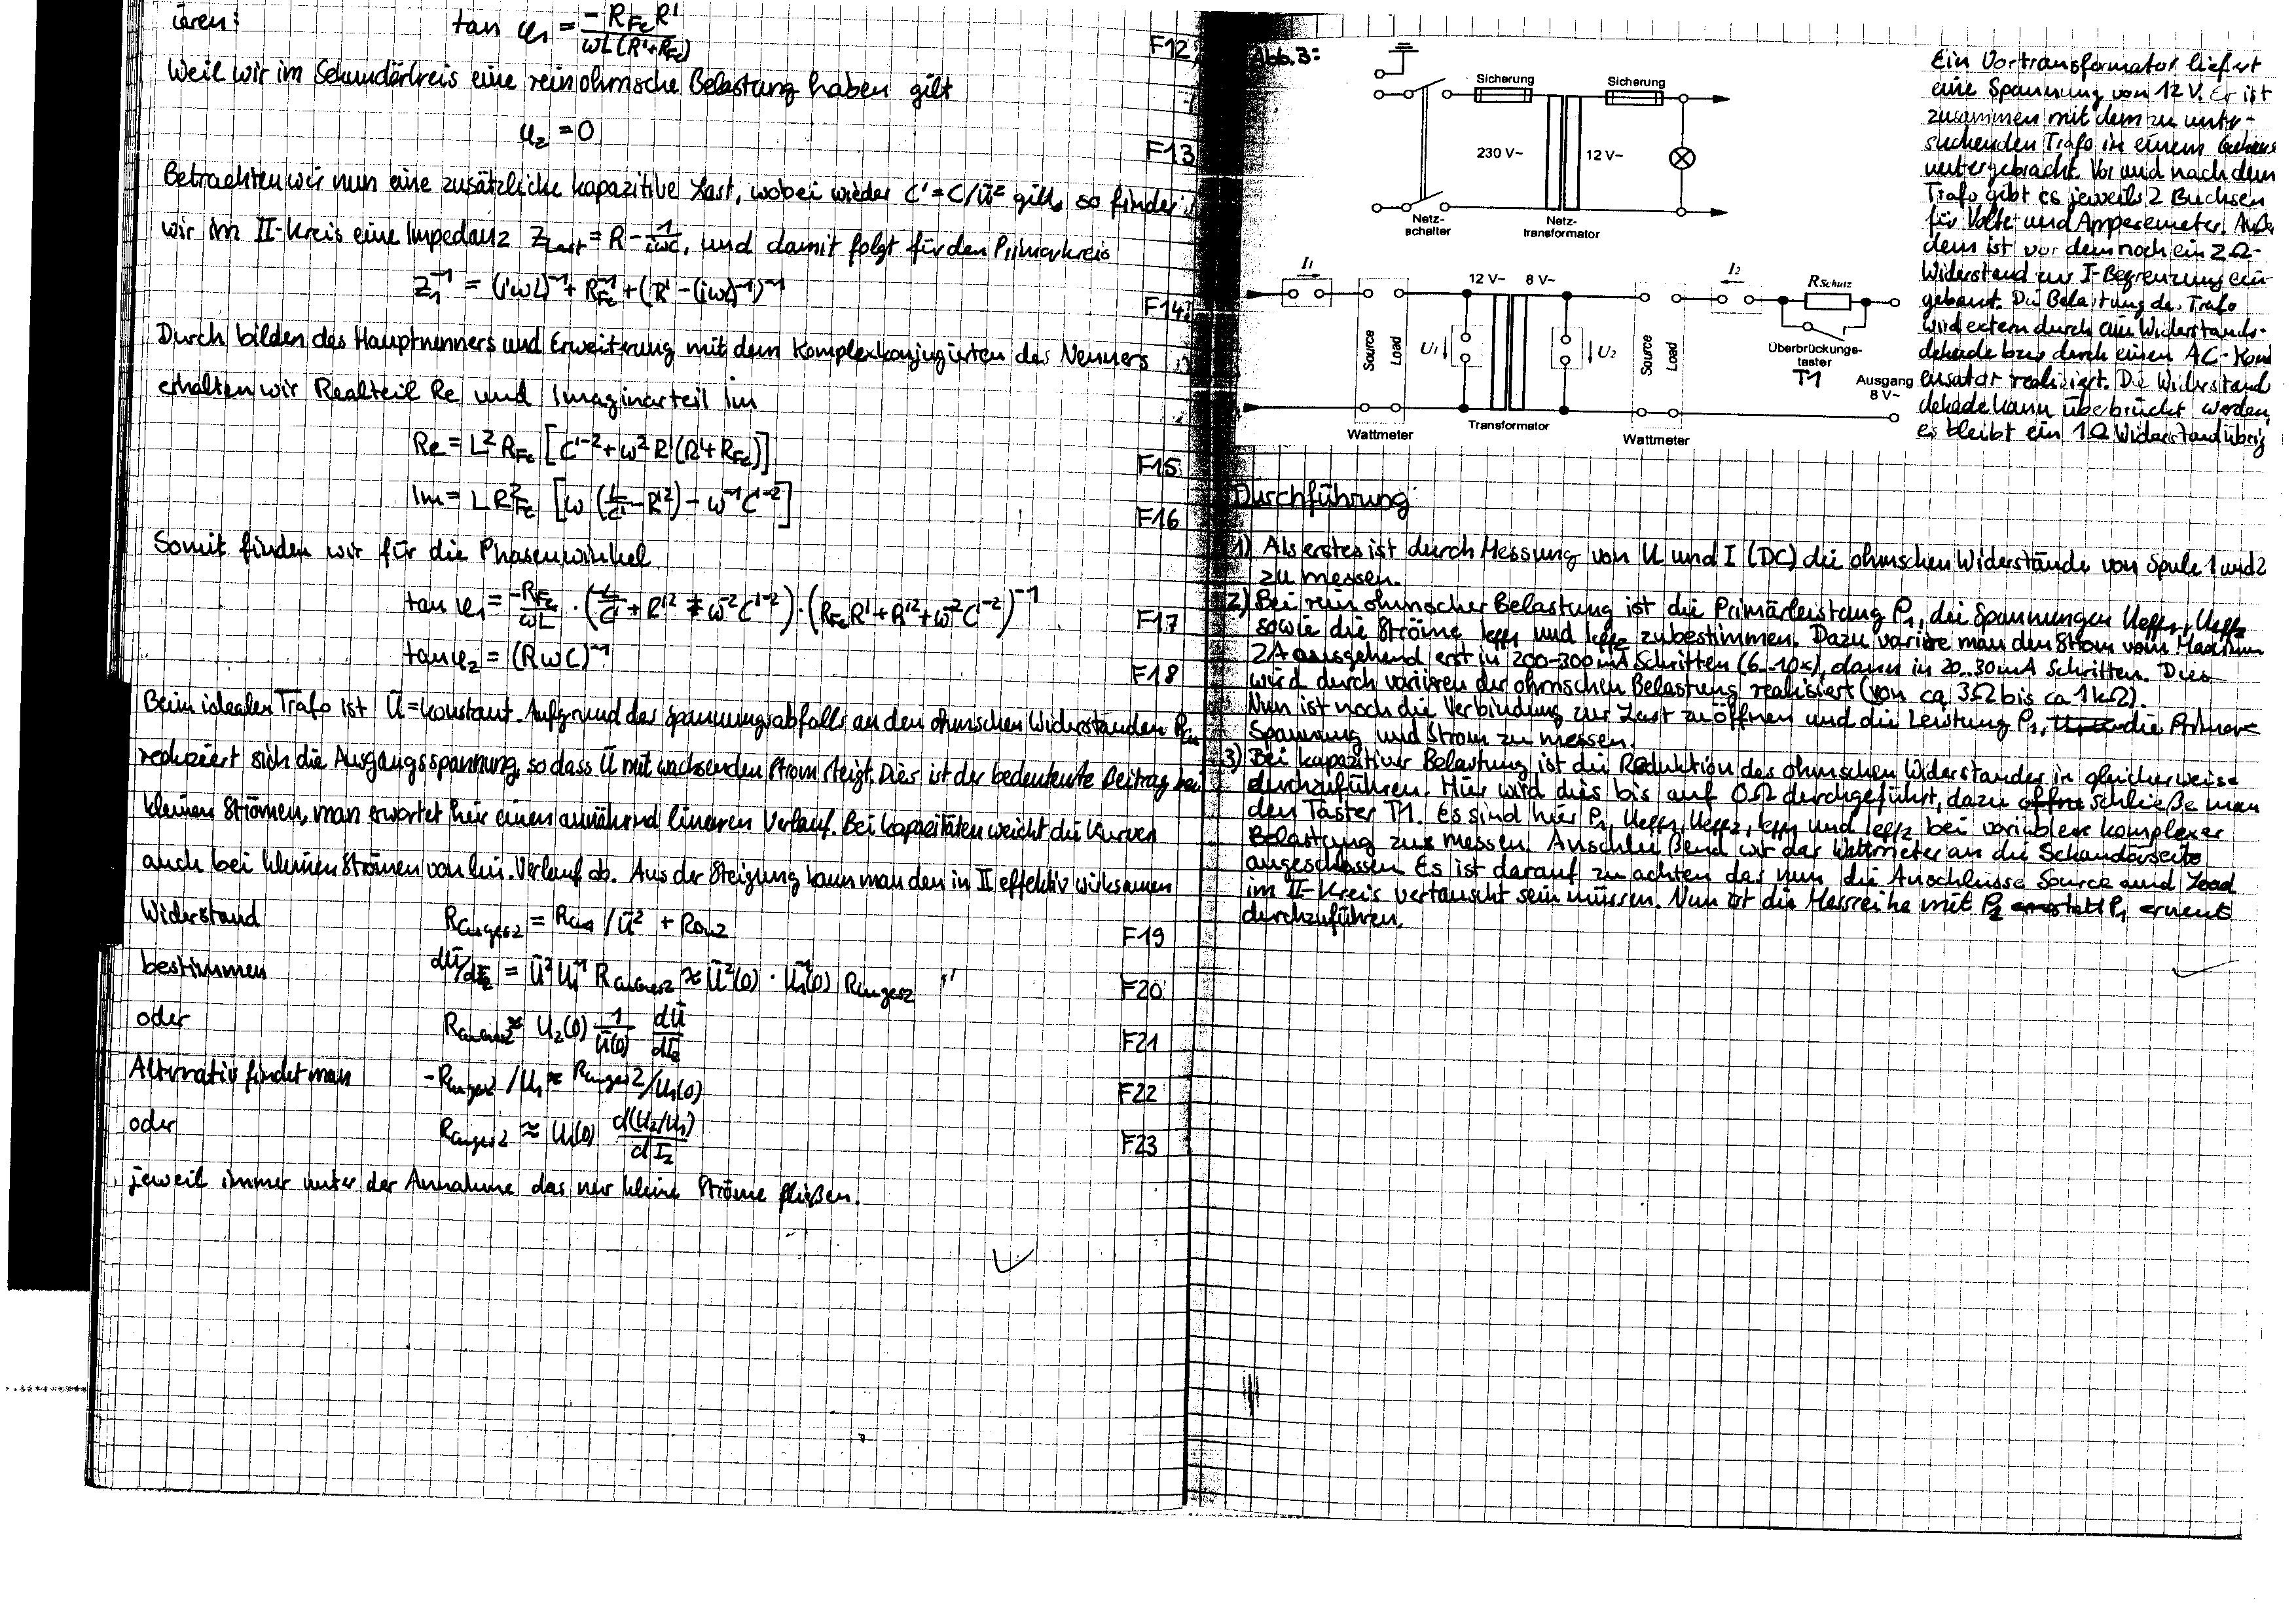 ieren: tan φ₁ = -R_Fe R' / ωL(R'+R_Fe) F12
Weil wir im Sekundärkreis eine rein ohmsche Belastung haben gilt
φ₂ = 0 F13
Betrachten wir nun eine zusätzliche kapazitive Last, wobei wieder C' = C/ü² gilt, so finden
wir im II-Kreis eine Impedanz Z_Last = R - 1/iωC, und damit folgt für den Primärkreis
Z₁⁻¹ = (iωL)⁻¹ + R_Fe⁻¹ + (R' - (iωC)⁻¹)⁻¹ F14
Durch bilden des Hauptnenners und Erweiterung mit dem Komplexkonjugierten des Nenners
erhalten wir Realteil Re und Imaginärteil Im
Re = L² R_Fe [C'⁻² + ω² R' (R' + R_Fe)] F15
Im = L R²_Fe [ω (L/C' - R'²) - ω⁻¹ C'⁻²] F16
Somit finden wir für die Phasenwinkel
tan φ₁ = -R_Fe/ωL · (L/C' + R'² + ω⁻² C'⁻²) · (R_Fe R' + R'² + ω⁻² C'⁻²)⁻¹ F17
tan φ₂ = (RωC)⁻¹ F18
Beim idealen Trafo ist Ü = konstant. Aufgrund des Spannungsabfalls an den ohmschen Widerständen R_Cu
reduziert sich die Ausgangsspannung, so dass Ü mit wachsenden Strom steigt. Dies ist der bedeutenste Beitrag bei
kleinen Strömen, man erwartet hier einen annährend linearen Verlauf. Bei Kapazitäten weicht die Kurve
auch bei kleinen Strömen von lin. Verlauf ab. Aus der Steigung kann man den in II effektiv wirksamen
Widerstand R_Cuges2 = R_Cu1 / Ü² + R_Cu2 F19
bestimmen dÜ/dI₂ = Ü² U₁⁻¹ R_Cuges2 ≈ Ü²(0) · U₁⁻¹(0) R_Cuges2 F20
oder R_Cuges2 ≈ U₂(0) 1/Ü(0) dÜ/dI₂ F21
Alternativ findet man -R_Cuges2 / U₁ ≈ R_Cuges2 / U₁(0) F22
oder R_Cuges2 ≈ U₁(0) d(U₂/U₁)/dI₂ F23
jeweil immer unter der Annahme das nur kleine Ströme fließen.
Abb. 3:
Sicherung Sicherung
230 V~ 12 V~
Netz-
schalter
Netz-
transformator
I₁ 12 V~ 8 V~ I₂ R Schutz
Source Load U₁ U₂ Source Load
Überbrückungs-
taster
T1
Ausgang
8 V~
Wattmeter Transformator Wattmeter
Ein Vortransformator liefert
eine Spannung von 12 V. Er ist
zusammen mit dem zu unter-
suchenden Trafo in einem Gehäus
untergebracht. Vor und nach dem
Trafo gibt es jeweils 2 Buchsen
für Volt- und Amperemeter. Außer
dem ist vor dem noch ein 2 Ω-
Widerstand zur I-Begrenzung ein
gebaut. Die Belastung des Trafo
wird extern durch ein Widerstands-
dekade bzw durch einen AC-Kond
ensator realisiert. Die Widerstand
dekade kann überbrückt werden,
es bleibt ein 1Ω Widerstand übrig
Durchführung:
1) Als erstes ist durch Messung von U und I (DC) die ohmschen Widerstände von Spule 1 und 2
zu messen.
2) Bei rein ohmscher Belastung ist die Primärleistung P₁, die Spannungen Ueff₁, Ueff₂
sowie die Ströme Ieff₁ und Ieff₂ zu bestimmen. Dazu variire man den Strom vom Maximum
2A ausgehend erst in 200-300 mA Schritten (6..10x), dann in 20..30 mA Schritten. Dies
wird durch variiren der ohmschen Belastung realisiert (von ca 3Ω bis ca 1kΩ).
Nun ist noch die Verbindung zur Last zu öffnen und die Leistung P₁, die Primäre
Spannung und Strom zu messen.
3) Bei kapazitiver Belastung ist die Reduktion des ohmschen Widerstandes in gleicher weise
durchzuführen. Hier wird dies bis auf 0Ω durchgeführt, dazu schließe man
den Taster T1. Es sind hier P₁, Ueff₁, Ueff₂, Ieff₁ und Ieff₂ bei variabler komplexer
Belastung zu messen. Anschließend wir das Wattmeter an die Sekundärseite
angeschlossen. Es ist darauf zu achten das nun die Anschlüsse Source und Load
im II-Kreis vertauscht sein müssen. Nun ist die Messreihe mit P₂ anstatt P₁ erneut
durchzuführen.